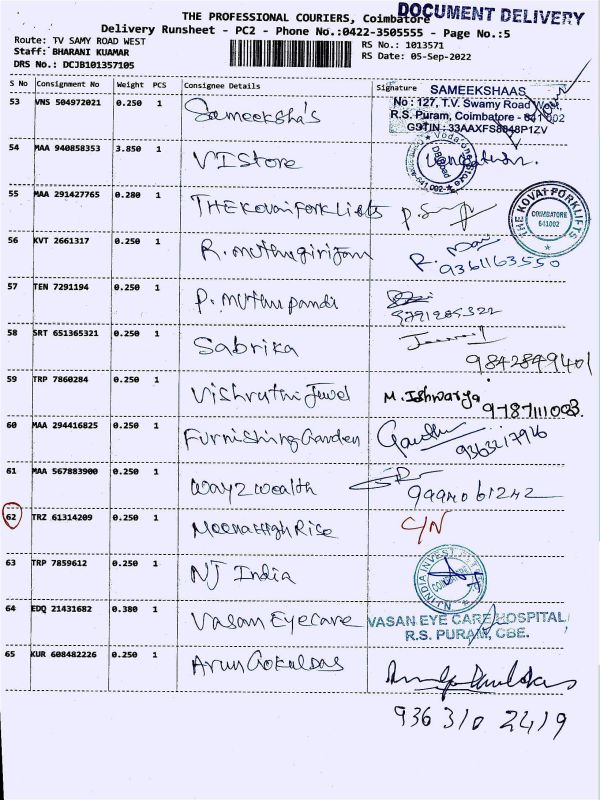 THE PROFESSIONAL COURIERS, Coimbatore
DOCUMENT DELIVERY
Delivery Runsheet - PC2 - Phone No.:0422-3505555 - Page No.:5
Route: TV SAMY ROAD WEST
RS No.: 1013571
Staff: BHARANI KUAMAR
RS Date: 05-Sep-2022
DRS No.: DCJB101357105
S No Consignment No Weight PCS Consignee Details Signature
53 VNS 504972021 0.250 1 Sameeksha's
SAMEEKSHAAS
No : 127, T.V. Swamy Road West,
R.S. Puram, Coimbatore - 641 002
GSTIN : 33AAXFS8848P1ZV
54 MAA 940858353 3.850 1 VI Store
55 MAA 291427765 0.280 1 THE Kovai Fork Lists
THE KOVAI FORKLIFTS
COIMBATORE
641002
56 KVT 2661317 0.250 1 R. muthugirijam
9361163550
57 TEN 7291194 0.250 1 P. muthu pandi
58 SRT 651365321 0.250 1 Sabrika
9842849401
59 TRP 7860284 0.250 1 Vishruthi Jewel M. Ishwarya
9787111003.
60 MAA 294416825 0.250 1 Furnishing Garden
61 MAA 567883900 0.250 1 Way2wealth
62 TRZ 61314209 0.250 1 Meena High Rise C/N
63 TRP 7859612 0.250 1 NJ India
64 EDQ 21431682 0.380 1 Vasan Eyecare
VASAN EYE CARE HOSPITAL
R.S. PURAM, CBE.
65 KUR 608482226 0.250 1 Arun Gokuldas
936 310 2419